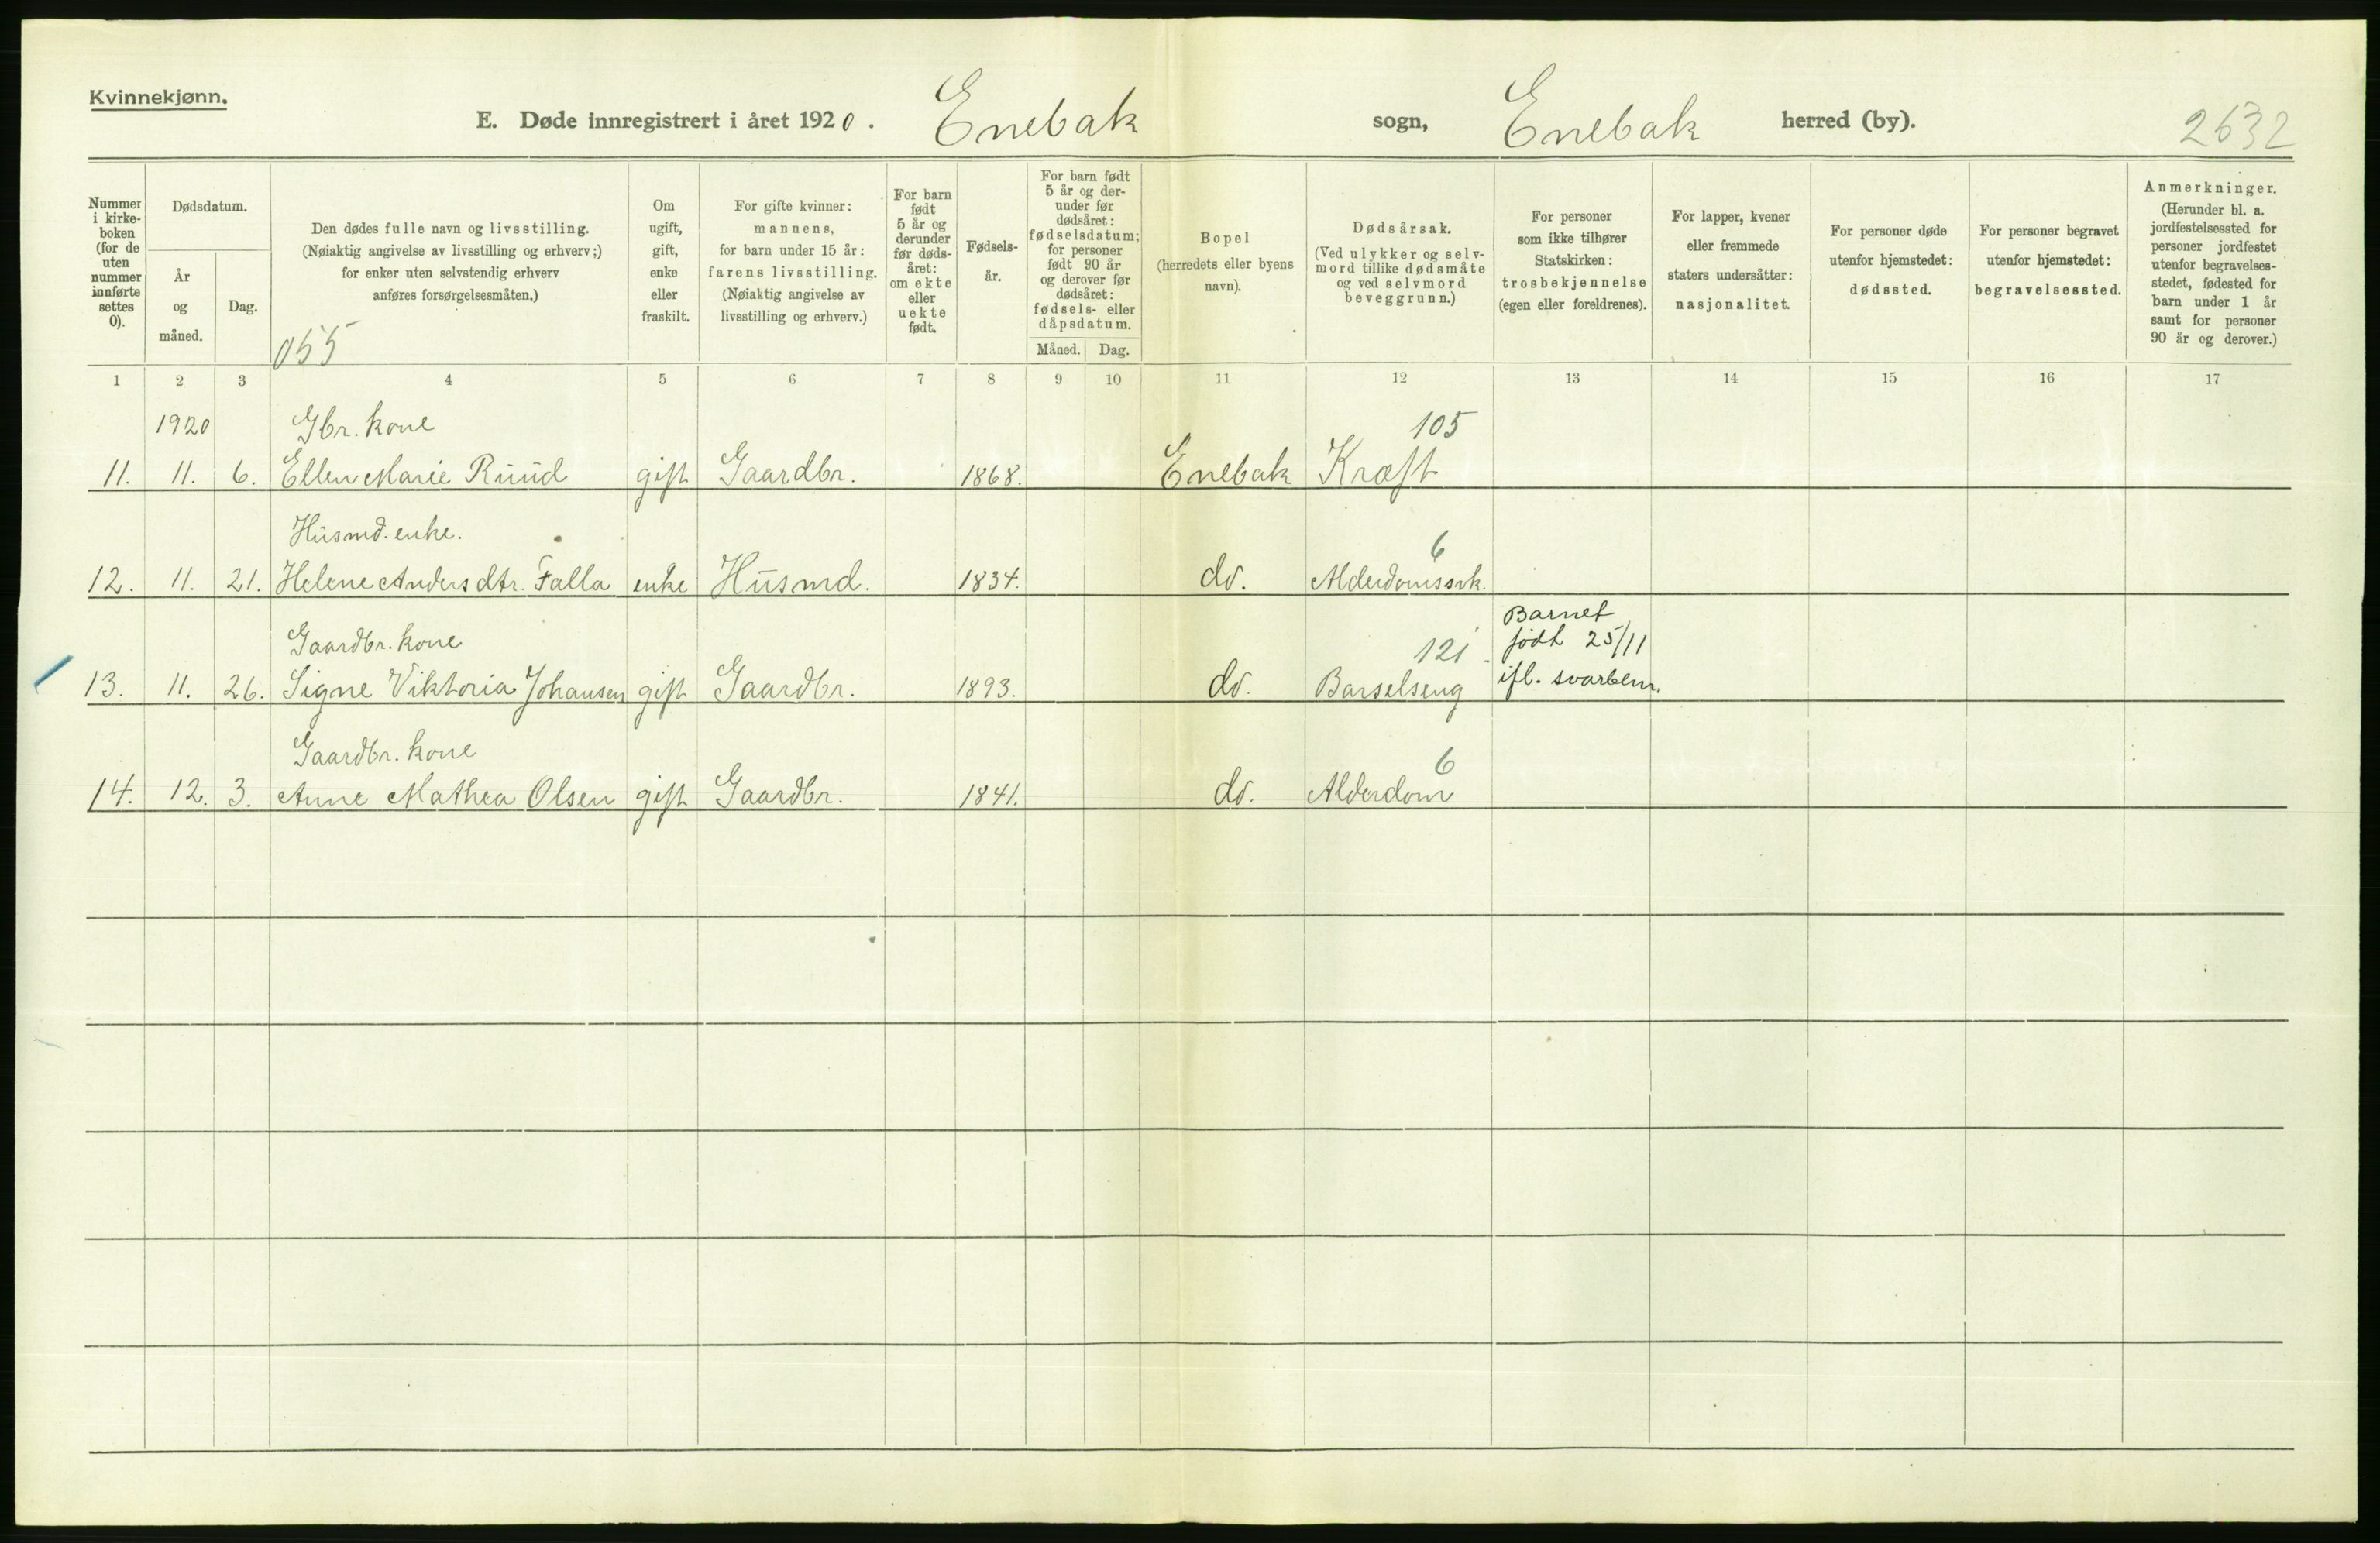 Kvinnekjønn.
E. Døde innregistrert i året 1920. Enebak sogn, Enebak herred (by). 2632
Nummer i kirke-boken (for de uten nummer innførte settes 0).
Dødsdatum.
År og måned.
Dag.
Den dødes fulle navn og livsstilling.
(Nøiaktig angivelse av livsstilling og erhverv;)
for enker uten selvstendig erhverv
anføres forsørgelsesmåten.)
055
Om
ugift,
gift,
enke
eller
fraskilt.
For gifte kvinner:
mannens,
for barn under 15 år:
farens livsstilling.
(Nøiaktig angivelse av
livsstilling og erhverv.)
For barn
født
5 år og
derunder
før døds-
året:
om ekte
eller
uekte
født.
Fødsels-
år.
For barn født
5 år og der-
under før
dødsåret:
fødselsdatum;
for personer
født 90 år
og derover før
dødsåret:
fødsels- eller
dåpsdatum.
Måned. Dag.
Bopel
(herredets eller byens
navn).
Dødsårsak.
(Ved ulykker og selv-
mord tillike dødsmåte
og ved selvmord
beveggrunn.)
For personer
som ikke tilhører
Statskirken:
trosbekjennelse
(egen eller foreldrenes).
For lapper, kvener
eller fremmede
staters undersåtter:
nasjonalitet.
For personer døde
utenfor hjemstedet:
dødssted.
For personer begravet
utenfor hjemstedet:
begravelsessted.
Anmerkninger.
(Herunder bl. a.
jordfestelsessted for
personer jordfestet
utenfor begravelses-
stedet, fødested for
barn under 1 år
samt for personer
90 år og derover.)
1 2 3 4 5 6 7 8 9 10 11 12 13 14 15 16 17
1920 Gbr. kone 105
11. 11. 6. Ellen Marie Ruud gift Gaardbr. 1868. Enebak Kræft
Husmd. enke. 6
12. 11. 21. Helene Andersdtr. Falla enke Husmd. 1834. do. Alderdomssvk.
Gaardbr. kone 121 Barnet
født 25/11
13. 11. 26. Signe Viktoria Johansen gift Gaardbr. 1893. do. Barselseng ifl. svarbem.
Gaardbr. kone 6
14. 12. 3. Anne Mathea Olsen gift Gaardbr. 1841. do. Alderdom